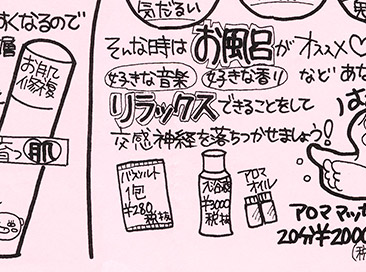 気だるい
すくなるので
層
お肌修復
育つ肌
そんな時はお風呂がオススメ♡
好きな音楽 好きな香り など あな
リラックスできることをして
交感神経を落ちつかせましょう!
バスソルト
1包
¥280
税抜
入浴液
¥3000
税抜
アロマ
オイル
アロママッ
20分¥2000
税